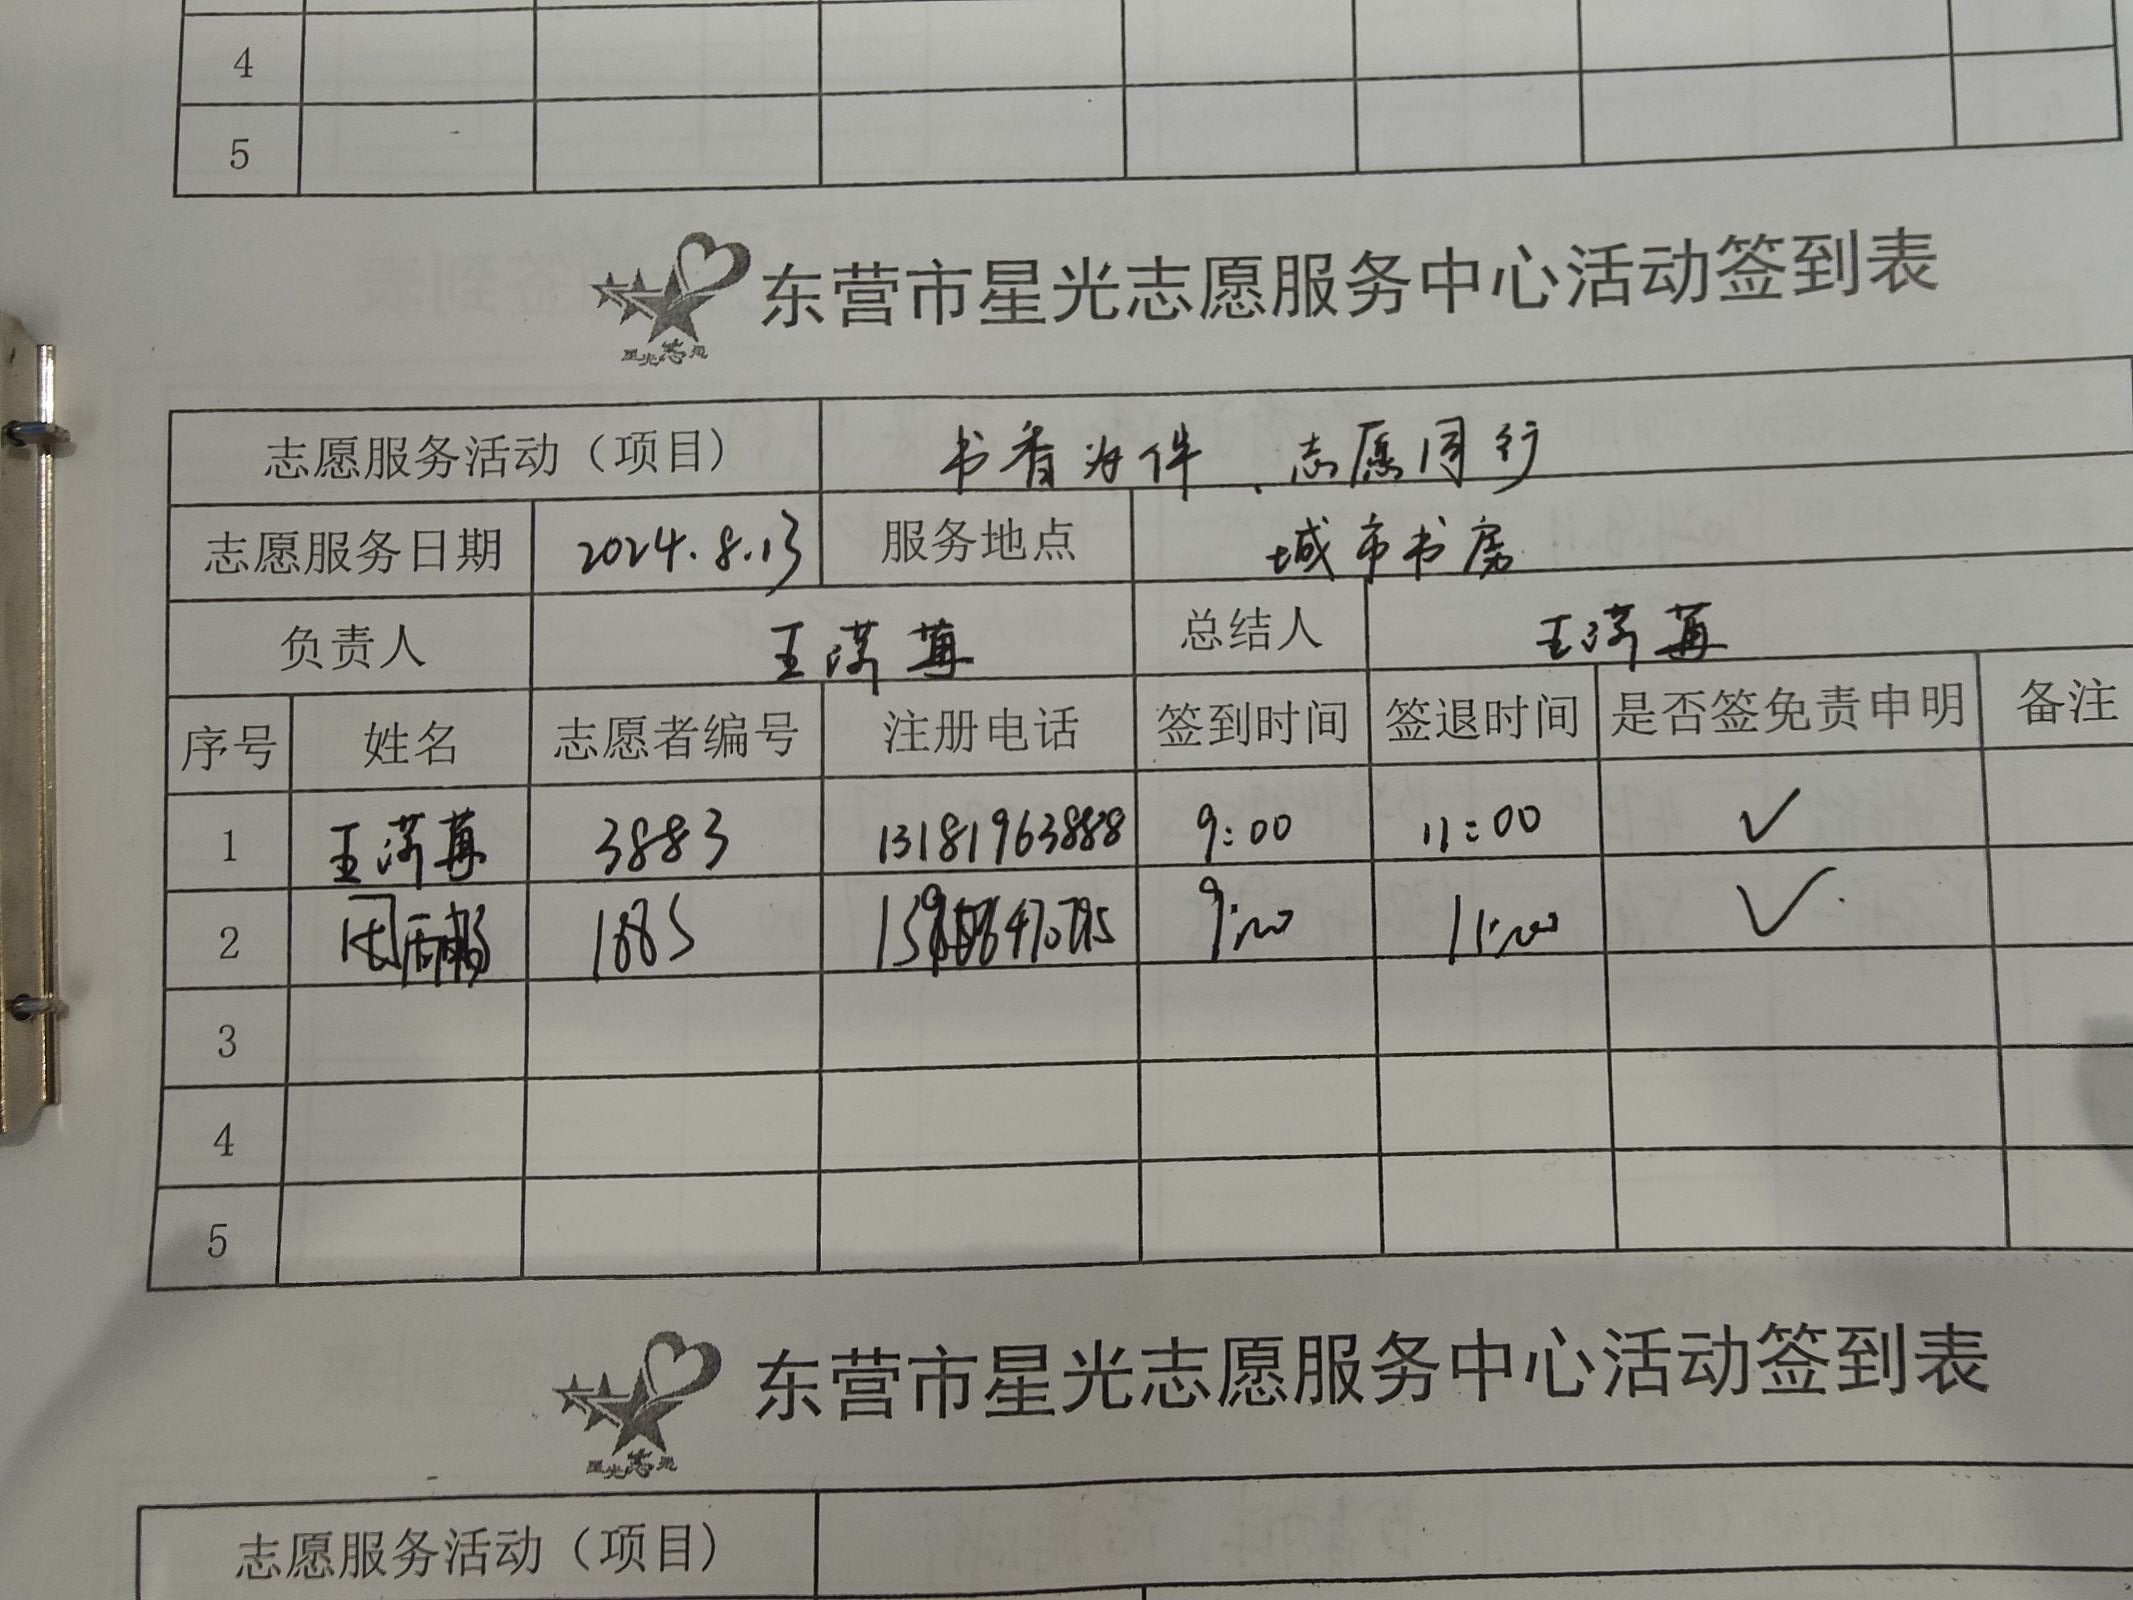 4
5
星光志愿 东营市星光志愿服务中心活动签到表
志愿服务活动（项目） 书香为伴、志愿同行
志愿服务日期 2024.8.13 服务地点 城市书房
负责人 王满苺 总结人 王满苺
序号 姓名 志愿者编号 注册电话 签到时间 签退时间 是否签免责申明 备注
1 王满苺 3883 13181963888 9:00 11:00 ✓
2 1885 9:00 11:00 ✓
3
4
5
星光志愿 东营市星光志愿服务中心活动签到表
志愿服务活动（项目）